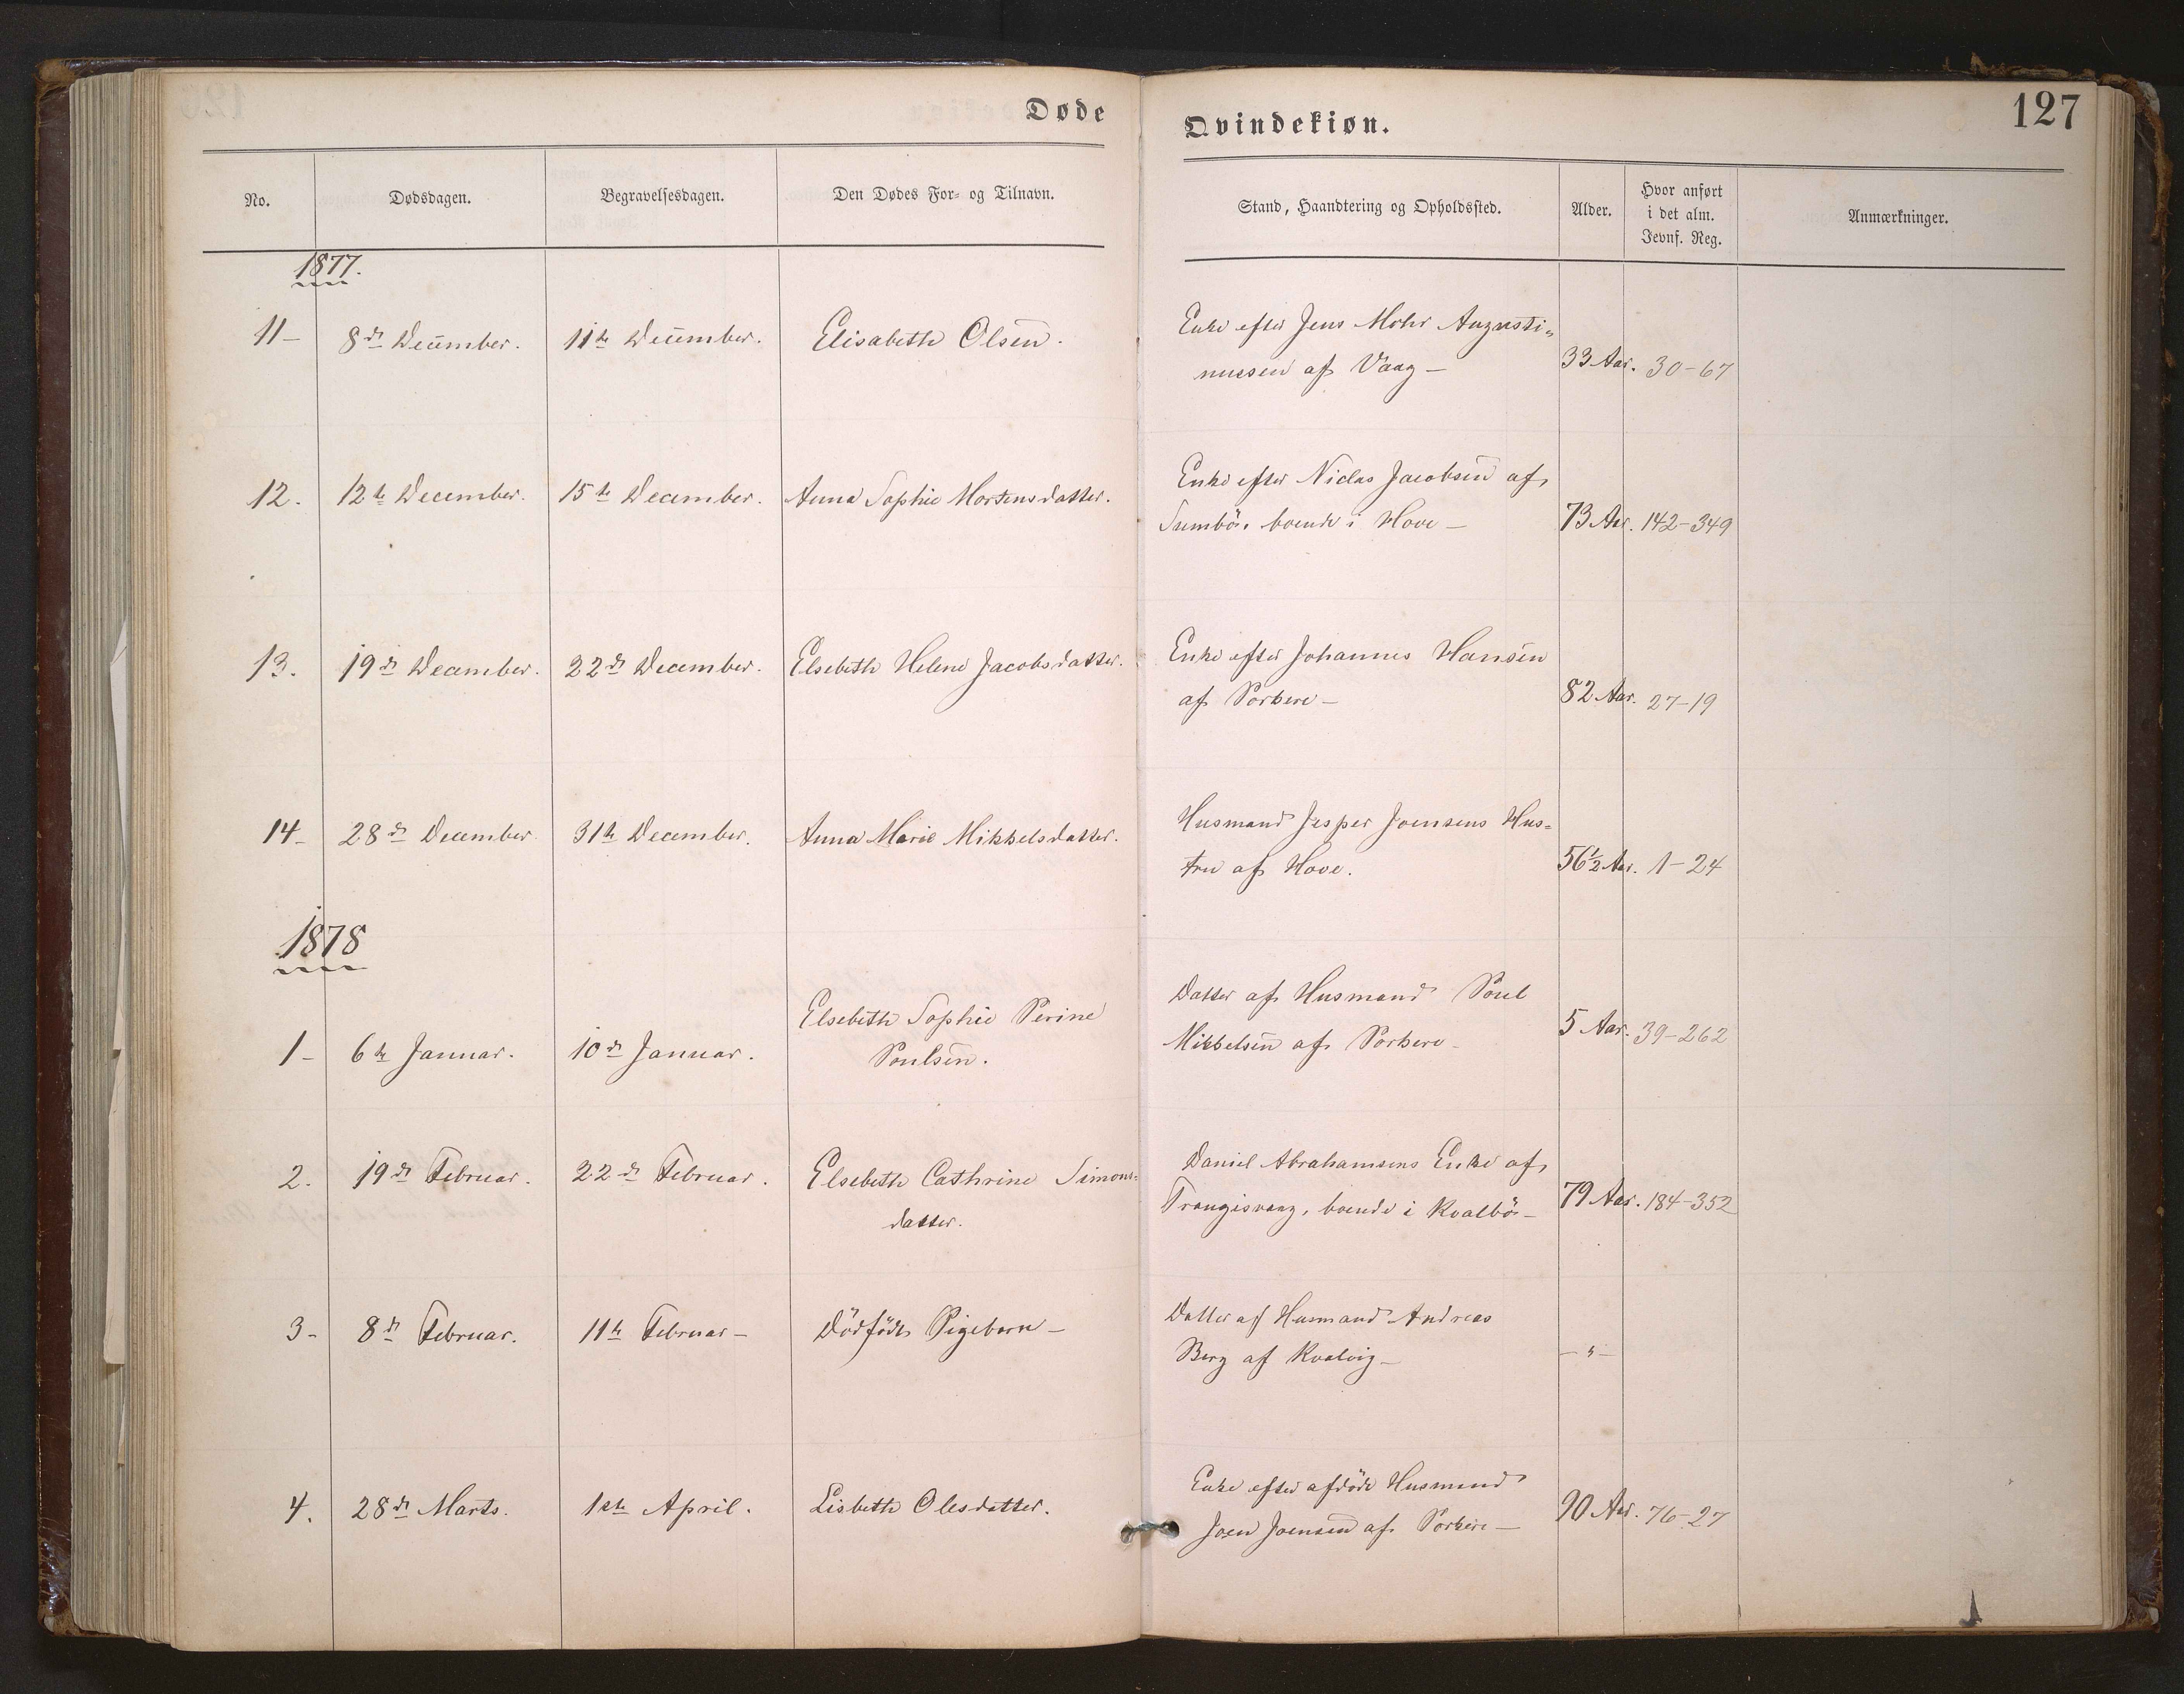 Døde
Qvindekiøn.
127
No.
Dødsdagen.
Begravelsesdagen.
Den Dødes For- og Tilnavn.
Stand, Haandtering og Opholdssted.
Alder.
Hvor anført
i det alm.
Jevnf. Reg.
Anmærkninger.
1877.
11 – 8de December. 11te December. Elisabeth Olsen. Enke efter Jens Mohr Augusti„
nussen af Vaag – 33 Aar. 30-67
12. 12te December. 15te December. Anna Sophie Mortensdatter. Enke efter Niclas Jacobsen af
Sumbö, boende i Hove – 73 Aar. 142-349
13. 19de December. 22de December. Elsebeth Helene Jacobsdatter. Enke efter Johannes Hansen
af Porkere – 82 Aar. 27-19
14 – 28de December 31te December. Anna Marie Mikkelsdatter. Husmand Jesper Joensens Hus=
tru af Hove. 56½ Aar. 1-24
1878
1 – 6te Januar. 10de Januar. Elsebeth Sophie Perine
Poulsen. Datter af Husmand Poul
Mikkelsen af Porkere – 5 Aar. 39-262
2. 19de Februar. 22de Februar. Elsebeth Cathrine Simons=
datter. Daniel Abrahamsens Enke af
Trangisvaag, boende i Kvalbö – 79 Aar. 184-352
3 – 8de Februar. 11te Februar – Dödfödt Pigebarn – Datter af Husmand Andreas
Berg af Kvalvig – – „ –
4. 28de Marts. 1ste April. Lisbeth Olesdatter. Enke efter afdöde Husmand
Joen Joensen af Porkere – 90 Aar. 76-27